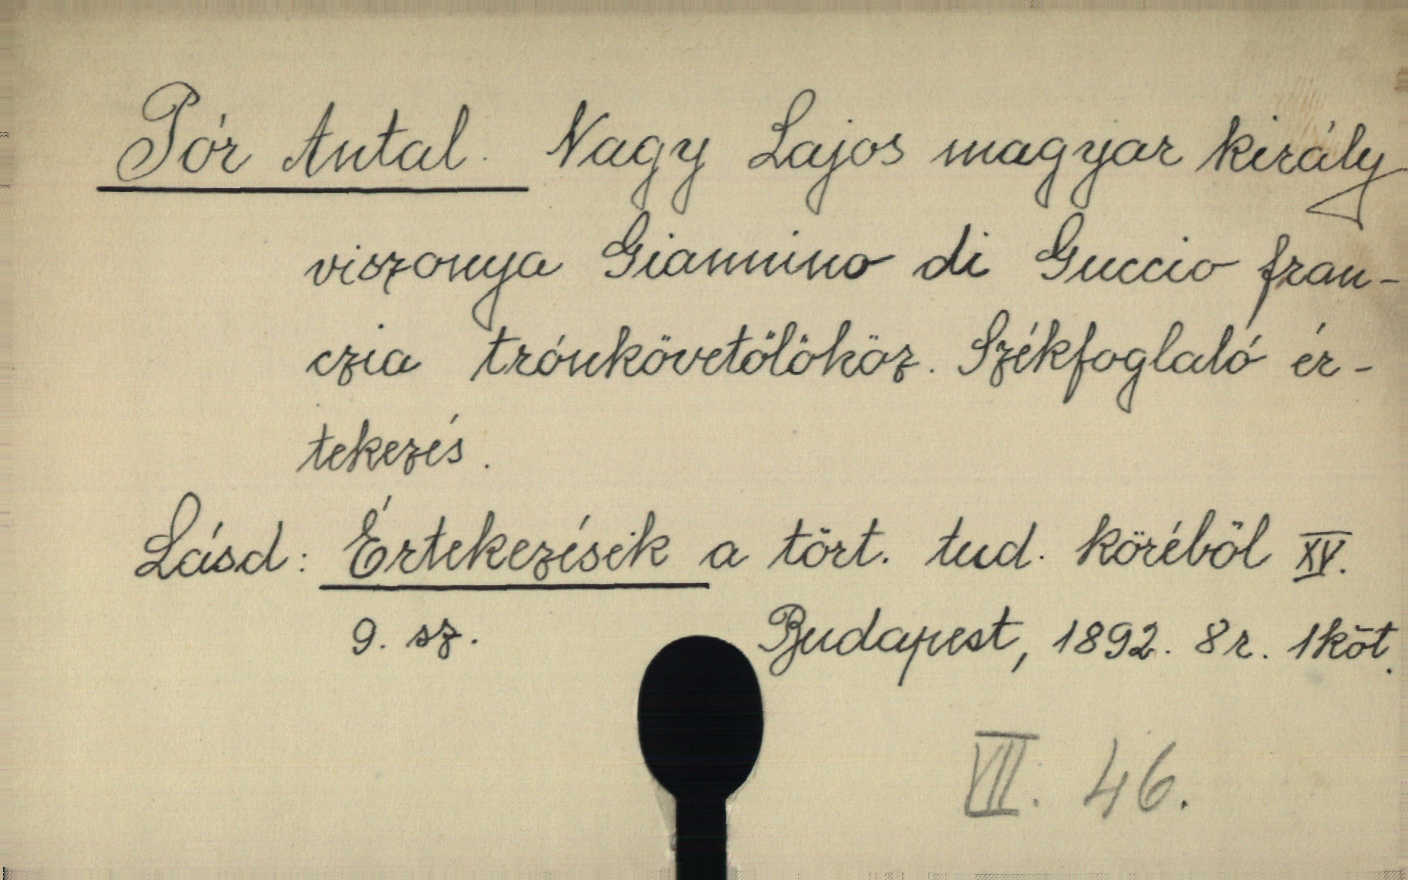 Pór Antal. Nagy Lajos magyar király
viszonya Giannino di Guccio fran-
czia trónkövetőlőköz. Székfoglaló ér-
tekezés.
Lásd: Értekezések a tört. tud. köréből XV.
9. sz. Budapest, 1892. 8r. 1 köt.
VII. 46.